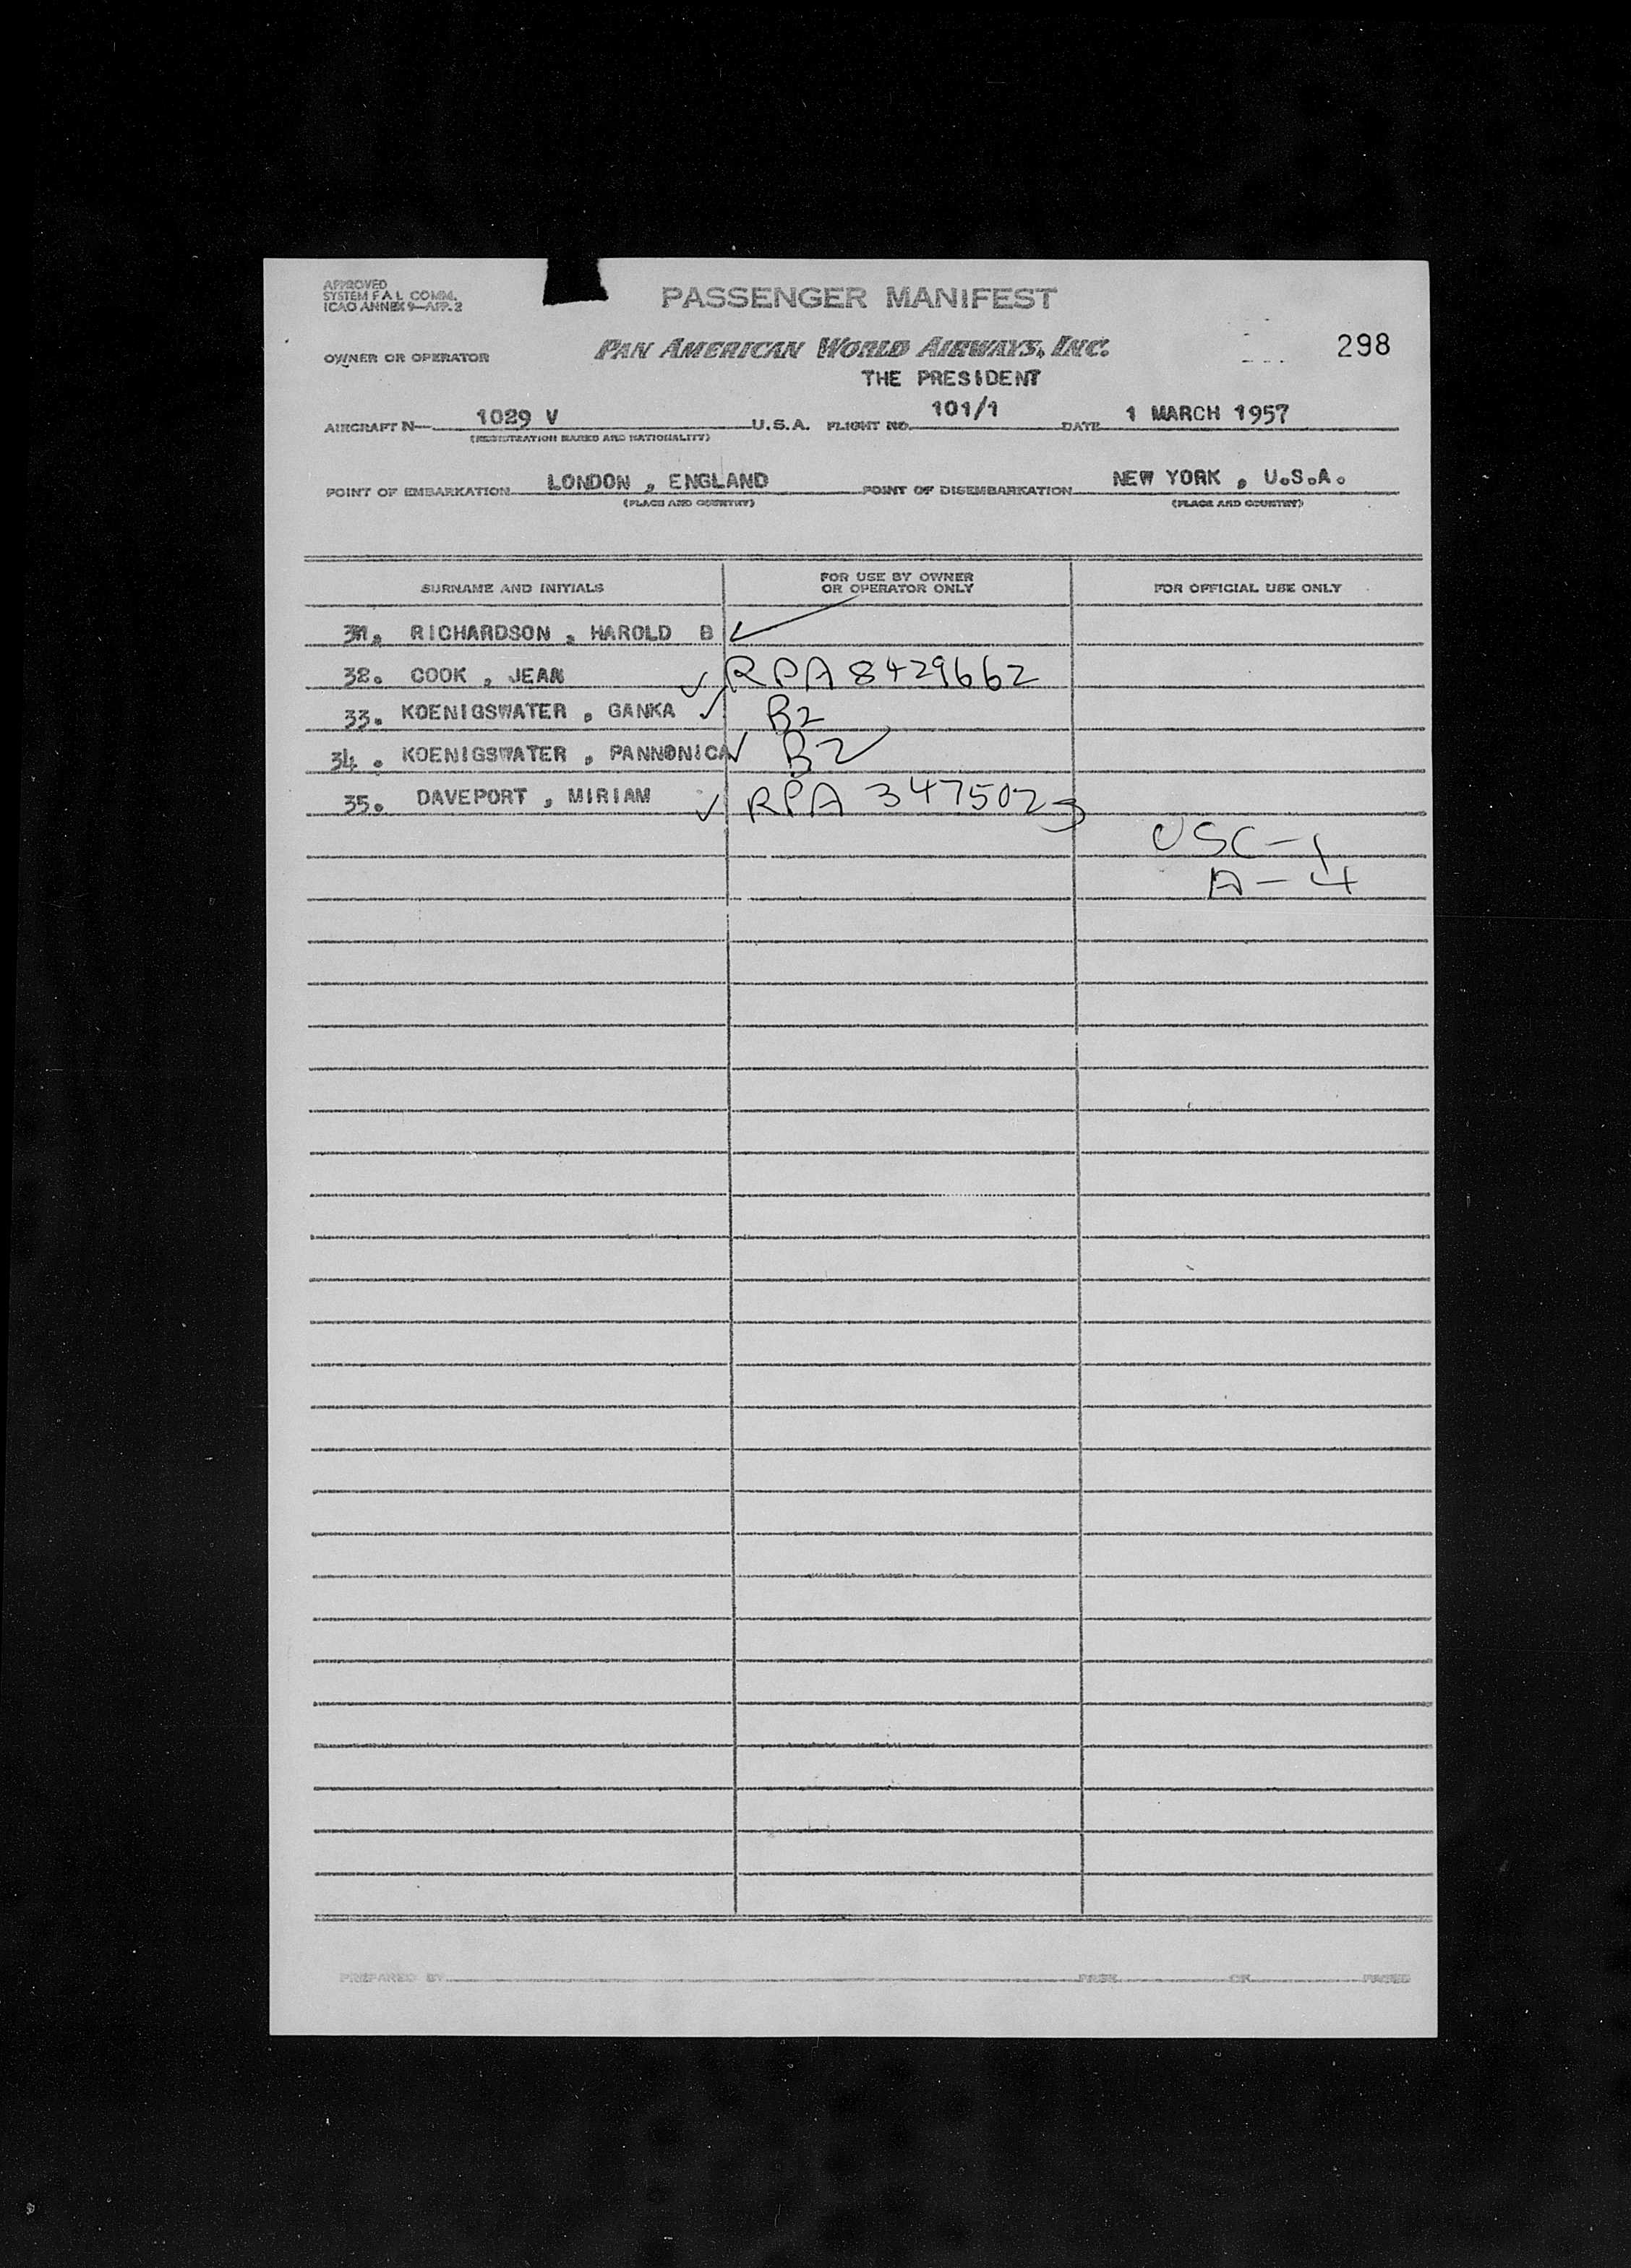 APPROVED
SYSTEM F A L COMM.
ICAO ANNEX 9—APP. 2
PASSENGER MANIFEST
OWNER OR OPERATOR PAN AMERICAN WORLD AIRWAYS, INC. 298
THE PRESIDENT
AIRCRAFT N— 1029 V U.S.A. FLIGHT NO. 101/1 DATE 1 MARCH 1957
(REGISTRATION MARKS AND NATIONALITY)
POINT OF EMBARKATION LONDON , ENGLAND POINT OF DISEMBARKATION NEW YORK , U.S.A.
(PLACE AND COUNTRY) (PLACE AND COUNTRY)
SURNAME AND INITIALS FOR USE BY OWNER OR OPERATOR ONLY FOR OFFICIAL USE ONLY
31. RICHARDSON , HAROLD B ✓
32. COOK , JEAN ✓ RPA 8429662
33. KOENIGSWATER , GANKA ✓ B2
34. KOENIGSWATER , PANNONICA ✓ B2
35. DAVEPORT , MIRIAM ✓ RPA 3475023
USC-1
A-4
PREPARED BY PAGE OF PAGES